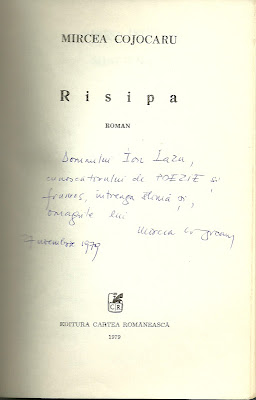 MIRCEA COJOCARU
Risipa
ROMAN
Domnului Ion Lazu,
cunoscătorului de POEZIE și
frumos, întreaga stimă și,
omagiile lui
Mircea Cojocaru
7 noiembrie 1979
CR
EDITURA CARTEA ROMÂNEASCĂ
1979